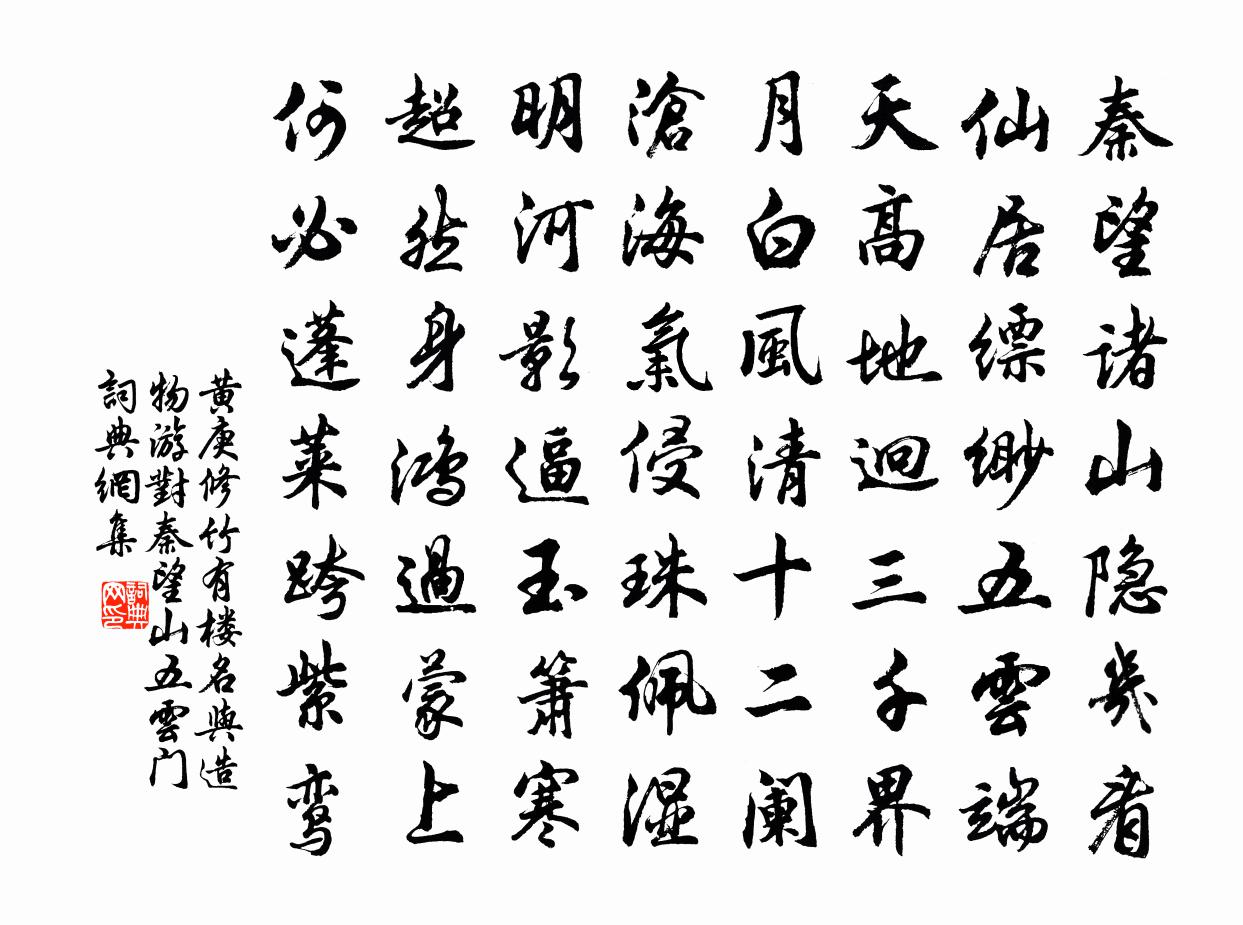 秦望诸山隐幾看
仙居缥缈五雲端
天高地迥三千界
月白風清十二阑
滄海氣侵珠佩湿
明河影逼玉簫寒
超然身鸿過蒙上
何必蓬莱跨紫鸾
黄庚修竹有楼名與造
物游對秦望山五雲门
詞典網集
詞典网印